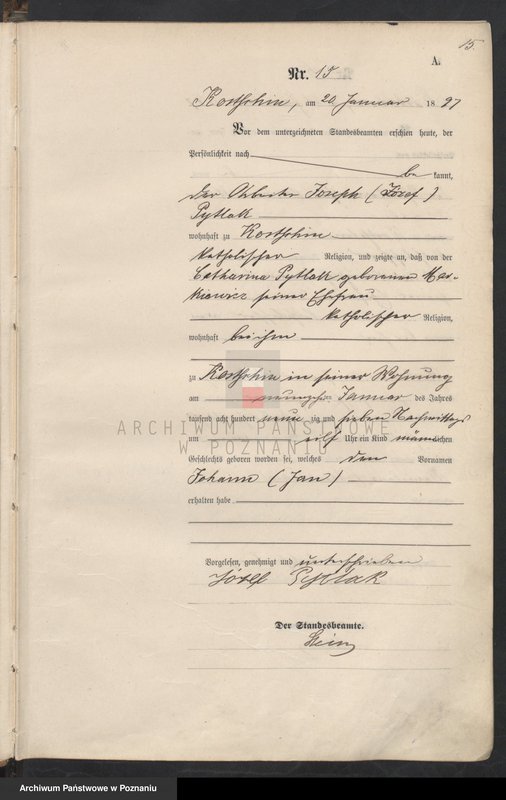 15.
A.
Nr. 15
Kostschin, am 20 Januar 18 97
Vor dem unterzeichneten Standesbeamten erschien heute, der
Persönlichkeit nach
be kannt,
der Arbeiter Joseph (Józef)
Pytlak
wohnhaft zu Kostschin
katholischer Religion, und zeigte an, daß von der
Catharina Pytlak geborenen Mar-
kiewicz seiner Ehefrau
katholischer Religion,
wohnhaft bei ihm
zu Kostschin in seiner Wohnung
am Januar des Jahres
tausend acht hundert neun zig und sieben Nachmittags
um elf Uhr ein Kind männlichen
Geschlechts geboren worden sei, welches den Vornamen
Johann (Jan)
erhalten habe
Vorgelesen, genehmigt und unterschrieben
Józef Pytlak
Der Standesbeamte.
ARCHIWUM PAŃSTWOWE
W POZNANIU
Archiwum Państwowe w Poznaniu